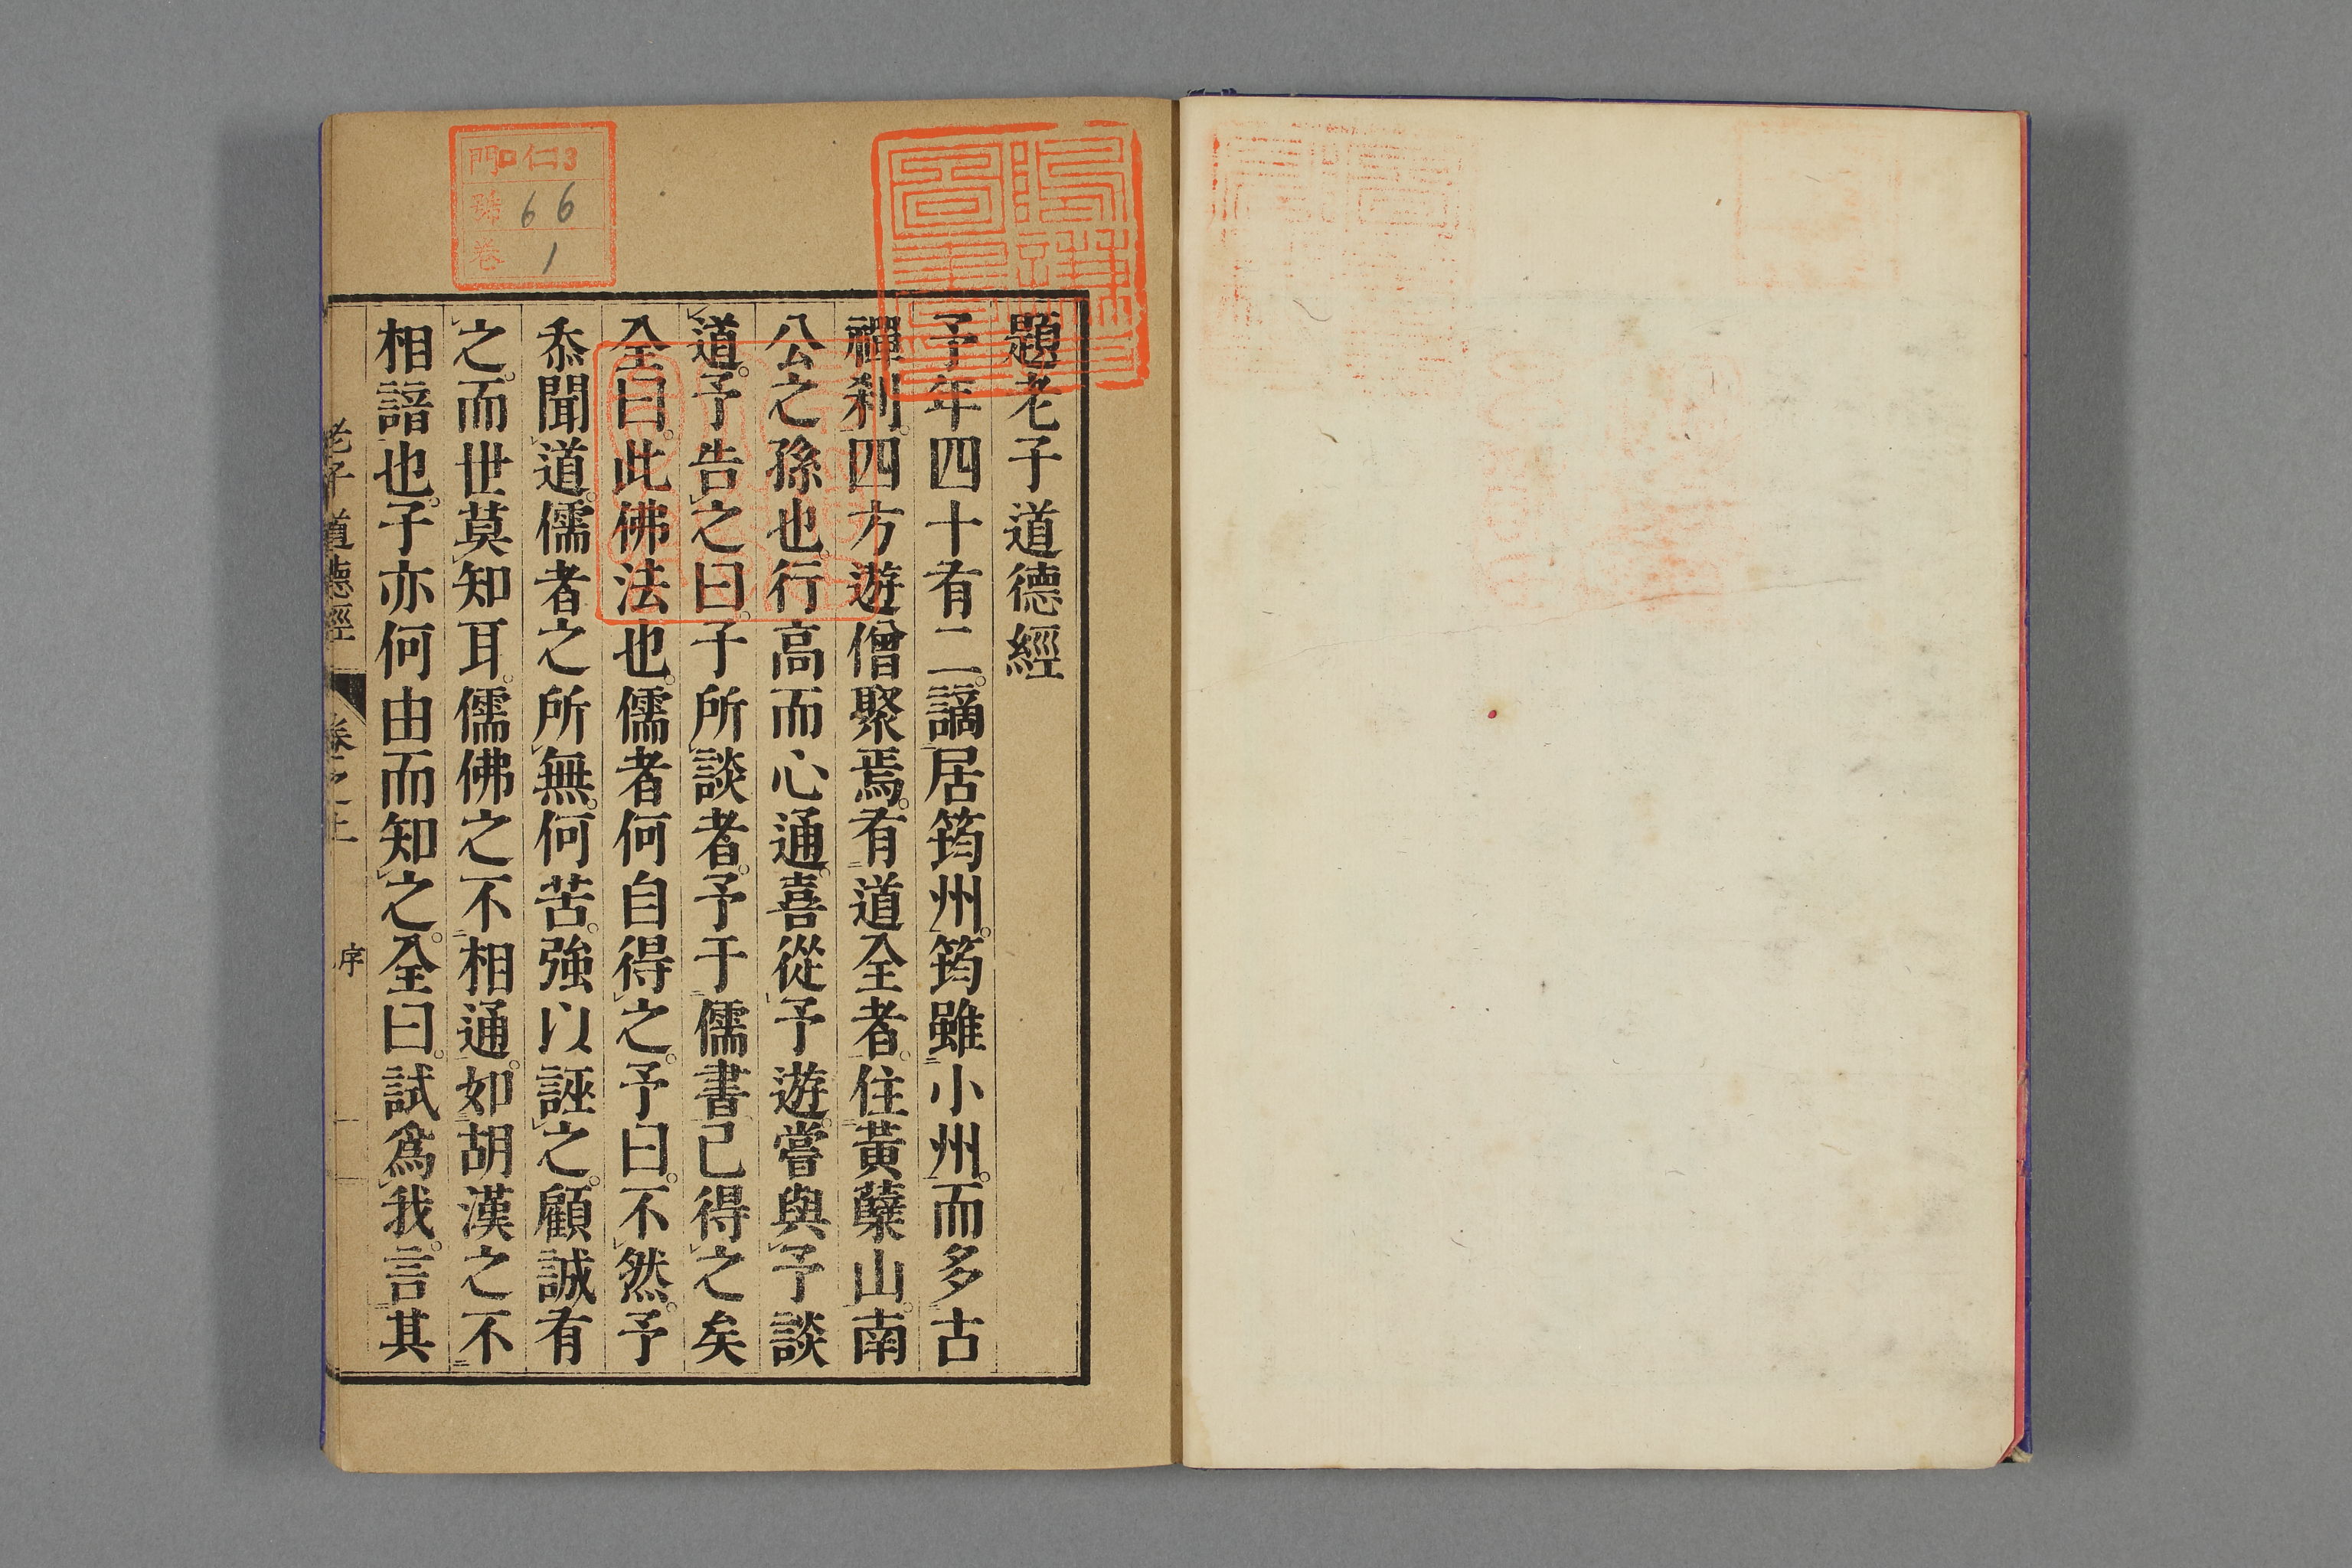 題老子道德經
予年四十有二。謫居筠州。筠雖小州。而多古
禪刹。四方遊僧聚焉。有道全者。住黃蘗山。南
公之孫也。行高而心通。喜從予遊。嘗與予談
道。予告之曰。子所談者。予于儒書已得之矣
全曰。此佛法也。儒者何自得之。予曰。不然。予
忝聞道。儒者之所無。何苦。強以誣之。顧誠有
之。而世莫知耳。儒佛之不相通。如胡漢之不
相諳也。子亦何由而知之。全曰。試爲我。言其
老子道德經 卷之上 序 一
門 口仁13
號 66
卷 1